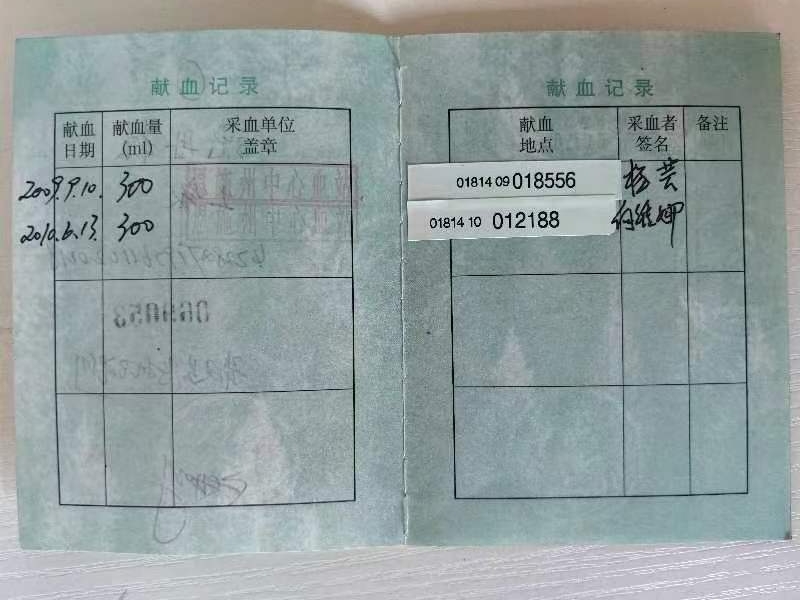 献血记录
献血日期 献血量(ml) 采血单位盖章
2009.9.10. 300
2010.6.13. 300
献血记录
献血地点 采血者签名 备注
01814 09 018556 杨芸
01814 10 012188